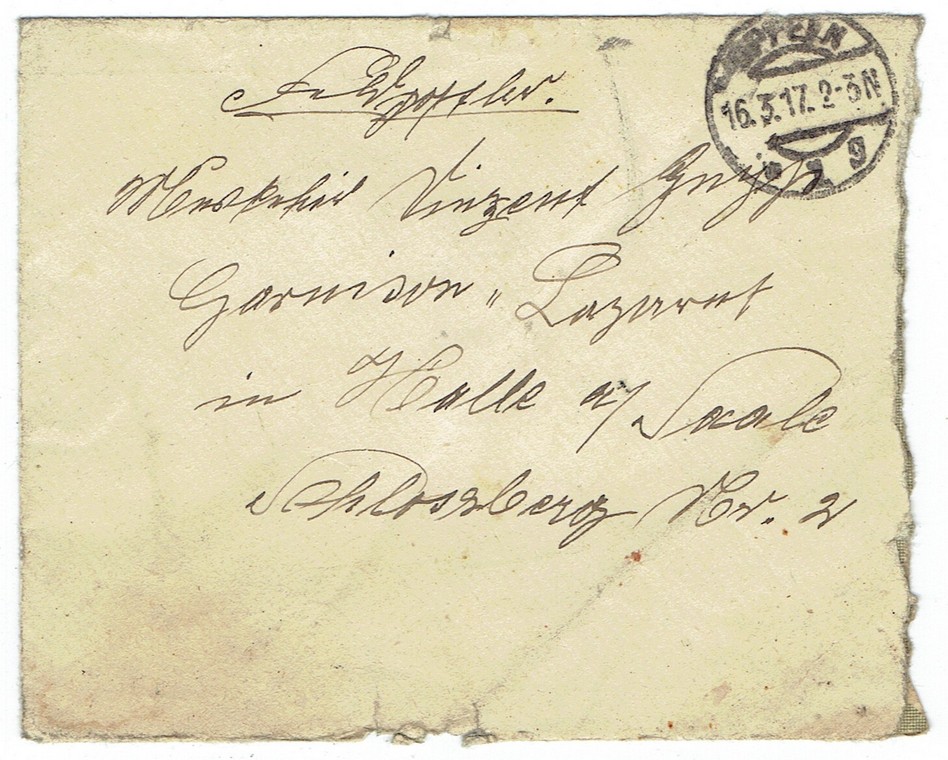 Feldpostbr.
Musketier Vinzent
Garnison „ Lazaret
in Halle a/ Saale
Schlossberg Nr. 2
16.3.17. 2-3N
* g